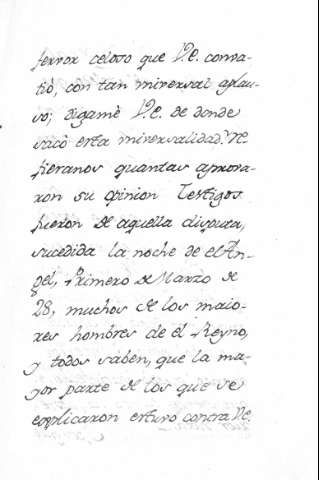 ferror celoso que V.e. comva-
tiò, con tan miversal aplau-
so; digamè V.e. de donde
sacò esta miversalidad? Re
fieranos quantas aprova-
ron su opinion Testigos
fueron de aquella disputa,
sucedida la noche de el An-
gel, Primero de Marzo de
28, muchos de los maio-
res hombres de el Reyno,
y todos saben, que la ma-
yor parte de los que se
explicaron estuvo contra Ve.